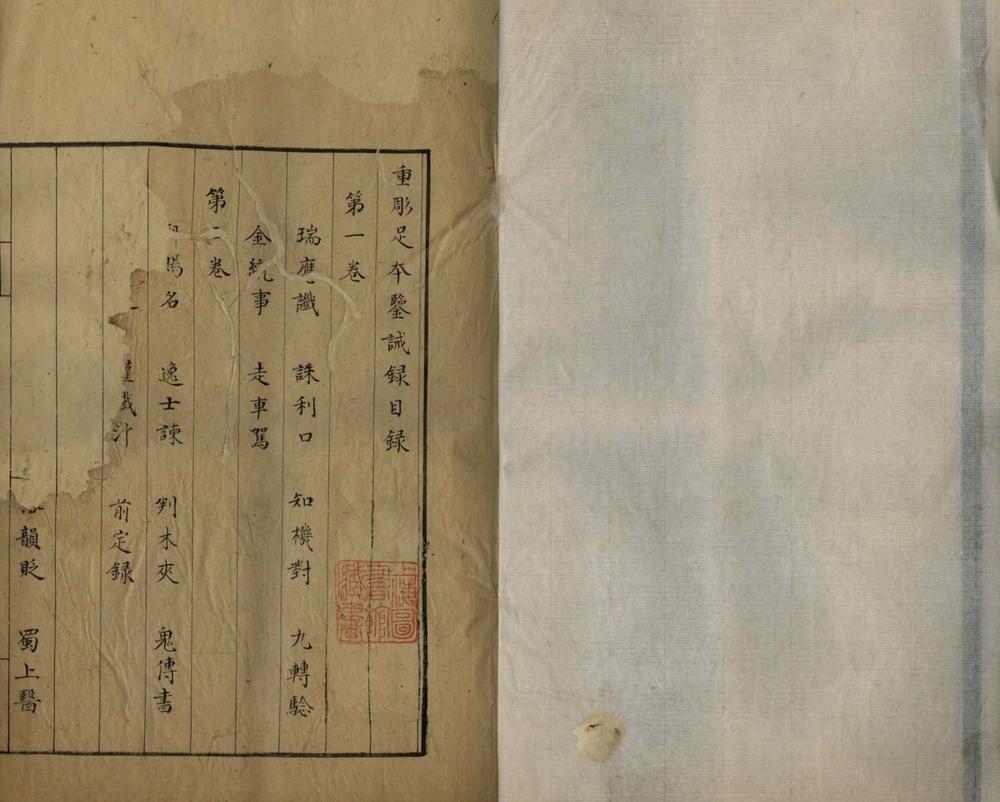 重彫足夲鑒誡録目録
第一卷
瑞應讖 誅利口 知機對 九轉驗
金統事 走車駕
第二卷
名 逸士諫 判木夾 鬼傳書
汁 前定録
韻貶 蜀上醫
上海圖書館藏書